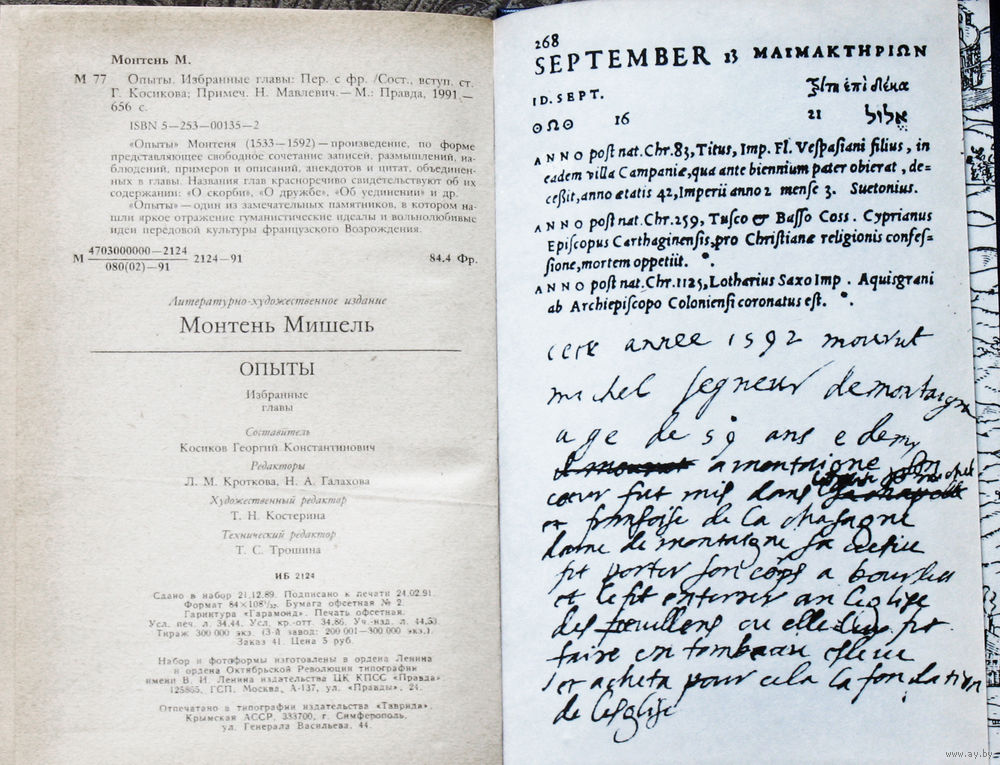 Монтень М.
М 77 Опыты. Избранные главы: Пер. с фр. /Сост., вступ. ст.
Г. Косикова; Примеч. Н. Мавлевич.— М.: Правда, 1991.—
656 с.
ISBN 5—253—00135—2
«Опыты» Монтеня (1533—1592) — произведение, по форме
представляющее свободное сочетание записей, размышлений, на-
блюдений, примеров и описаний, анекдотов и цитат, объединен-
ных в главы. Названия глав красноречиво свидетельствуют об их
содержании: «О скорби», «О дружбе», «Об уединении» и др.
«Опыты» — один из замечательных памятников, в котором на-
шли яркое отражение гуманистические идеалы и вольнолюбивые
идеи передовой культуры французского Возрождения.
М 4703000000—2124
080(02)—91 2124—91 84.4 Фр.
Литературно-художественное издание
Монтень Мишель
ОПЫТЫ
Избранные
главы
Составитель
Косиков Георгий Константинович
Редакторы
Л. М. Кроткова, Н. А. Галахова
Художественный редактор
Т. Н. Костерина
Технический редактор
Т. С. Трошина
ИБ 2124
Сдано в набор 21.12.89. Подписано к печати 24.02.91.
Формат 84×108¹/₃₂. Бумага офсетная № 2.
Гарнитура «Гарамонд». Печать офсетная.
Усл. печ. л. 34,44. Усл. кр.-отт. 34,86. Уч.-изд. л. 44,53.
Тираж 300 000 экз. (3-й завод: 200 001—300 000 экз.).
Заказ 41. Цена 5 руб.
Набор и фотоформы изготовлены в ордена Ленина
и ордена Октябрьской Революции типографии
имени В. И. Ленина издательства ЦК КПСС «Правда»
125865, ГСП, Москва, А-137, ул. «Правды», 24.
Отпечатано в типографии издательства «Таврида»,
Крымская АССР, 333700, г. Симферополь,
ул. Генерала Васильева, 44.
268
SEPTEMBER 13 ΜΑΙΜΑΚΤΗΡΙΩΝ
ID. SEPT. ἐπὶ δέκα
ΘΩΘ 16 21 אלול
ANNO post nat. Chr. 83, Titus, Imp. Fl. Vespasiani filius, in
eadem villa Campaniæ, qua ante biennium pater obierat, de-
cessit, anno ætatis 42, Imperii anno 2 mense 3. Suetonius.
ANNO post nat. Chr. 259, Tusco & Basso Coss. Cyprianus
Episcopus Carthaginensis, pro Christianæ religionis confes-
sione, mortem oppetiit.
ANNO post nat. Chr. 1125, Lotharius Saxo Imp. Aquisgrani
ab Archiepiscopo Coloniensi coronatus est.
cete annee 1592 mourut
michel segneur de montaigne
age de 59 ans e demy
a montaigne son
cœur fut mis dans
et fransoise de la chasagne
dame de montaigne sa
fit porter son cops a
et le fit enterrer an leglise
des feuillens ou elle luy fit
faire un tombeau esleve
et acheta pour cela la fondation
de leglise
www.ay.by